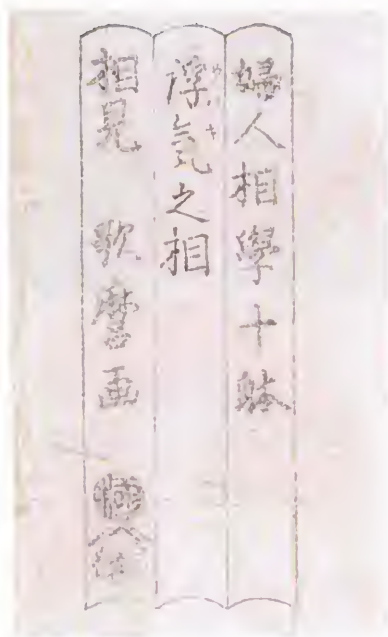 婦人相學十躰
浮氣之相
相見 歌麿画